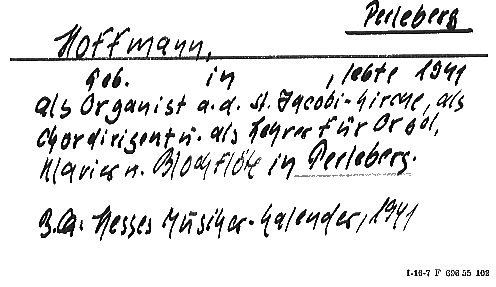 Perleberg
Hoffmann,
geb. in , lebte 1941
als Organist a.d. St. Jacobi-Kirche, als
Chordirigent u. als Lehrer für Orgel,
Klavier u. Blockflöte in Perleberg.
B.A. Hesses Musiker-Kalender, 1941
I-16-7 F 696 55 102